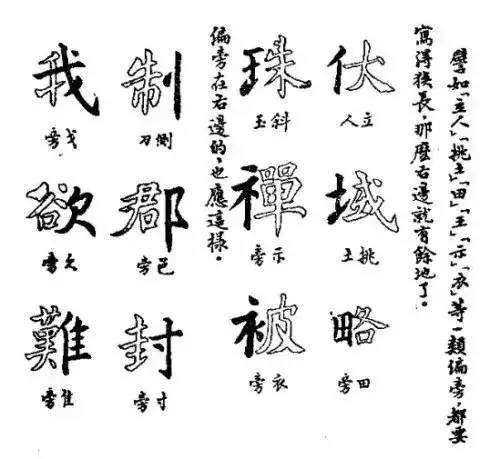 譬如「立人」「挑土」「田」「王」「示」「衣」等一類偏旁,都要
寫得狹長,那麽右邊就有餘地了。
伏
立人
域
挑土
略
田旁
珠
斜玉
禪
示旁
被
衣旁
偏旁在右邊的,也應這樣。
制
側刀
郡
邑旁
封
寸旁
我
戈旁
欲
欠旁
難
隹旁